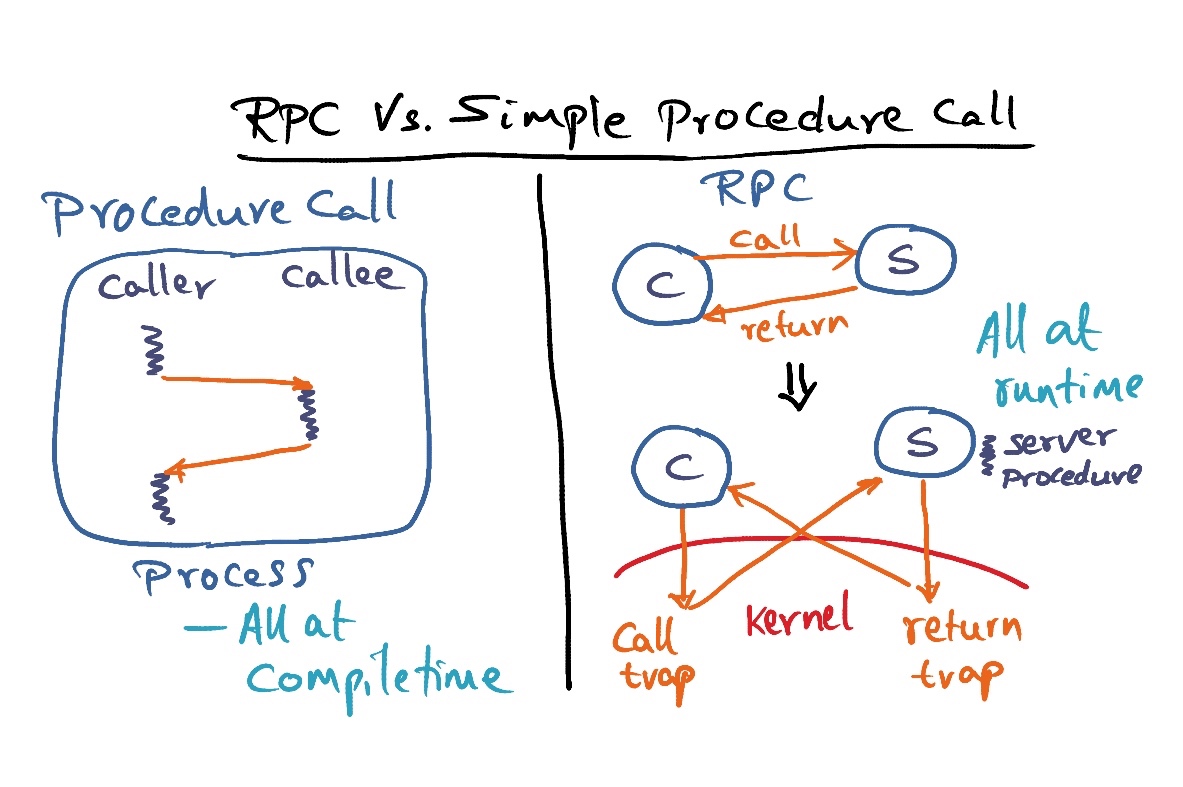 RPC Vs. Simple Procedure Call
Procedure Call
Caller
Callee
Process
— All at
Compiletime
RPC
C
call
S
return
⇓
All at
runtime
C
S
server
procedure
Kernel
Call
trap
return
trap